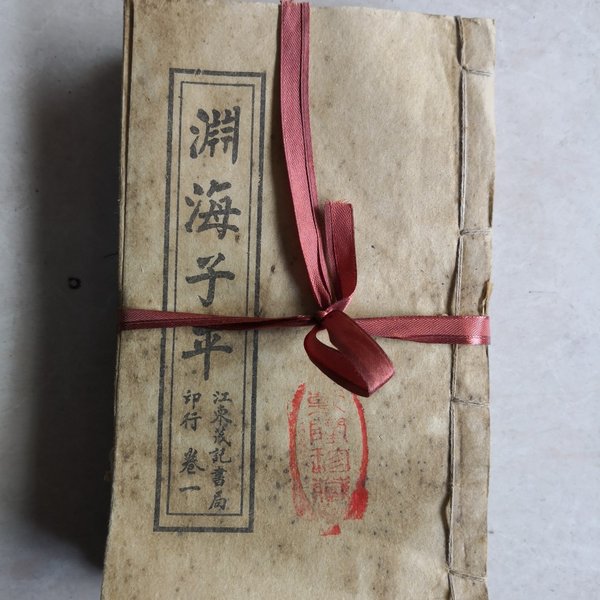 淵海子平
江東茂記書局
印行 卷一